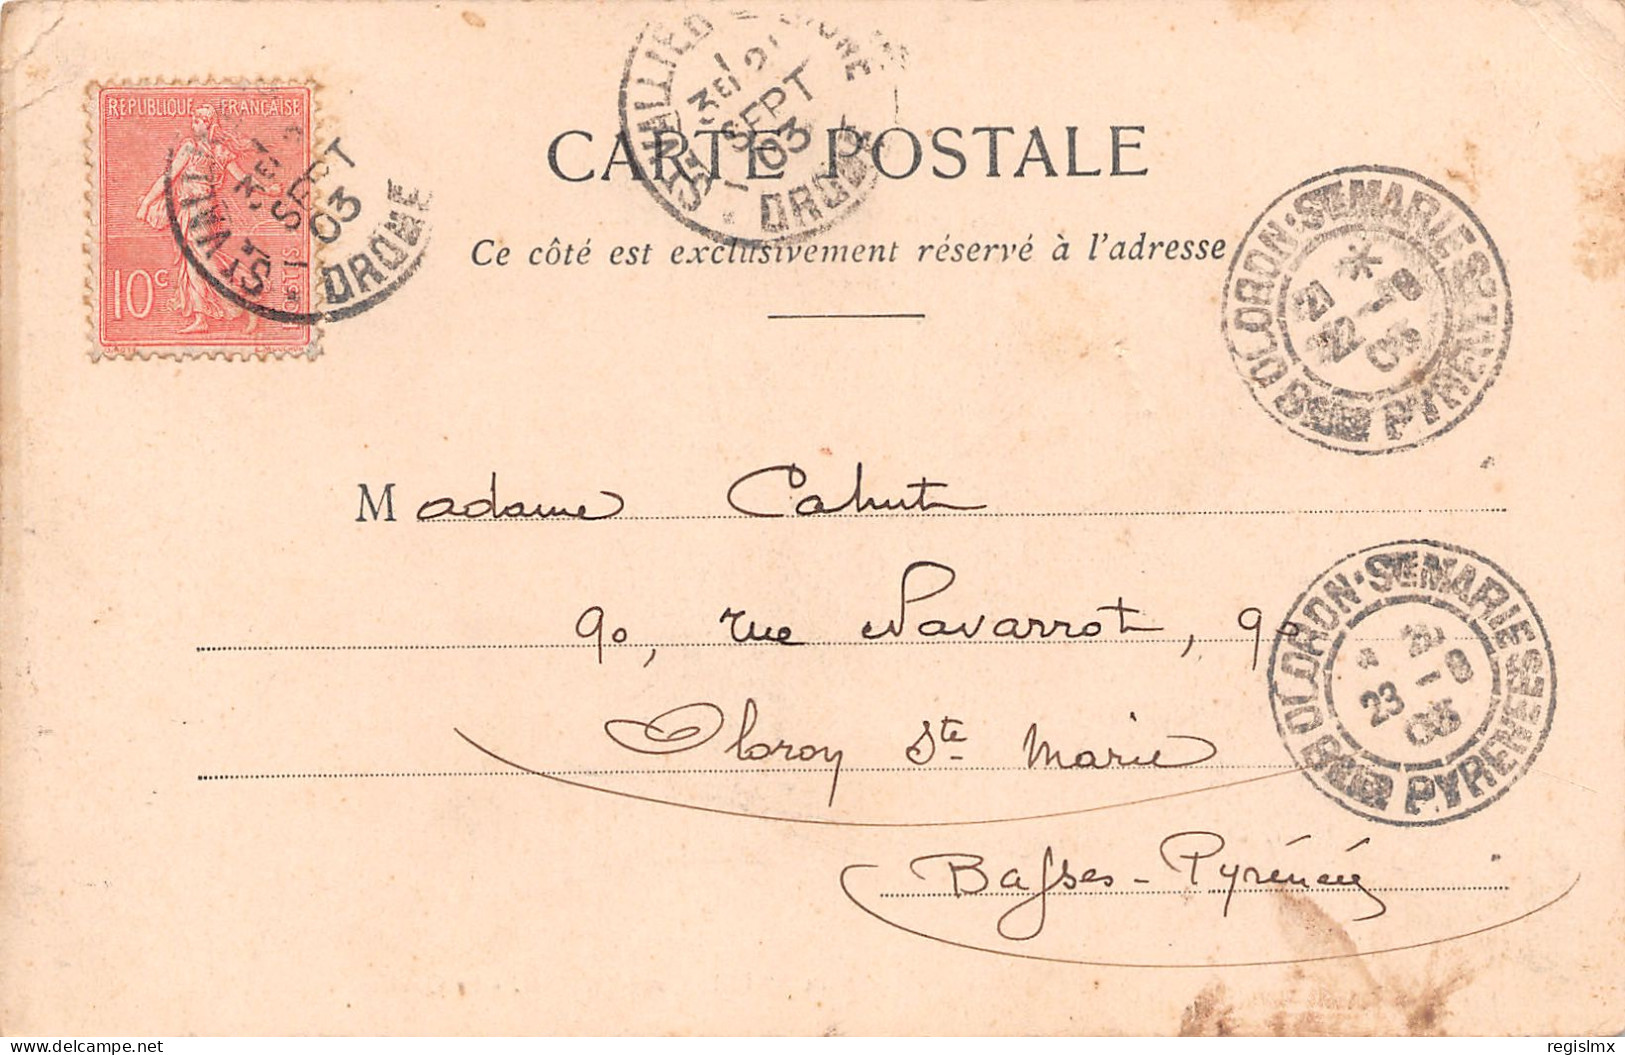 REPUBLIQUE FRANÇAISE
10c
POSTES
ST VALLIER
3E / 21
SEPT
03
DROME
ST VALLIER
3E / 21
SEPT
03
DROME
CARTE POSTALE
Ce côté est exclusivement réservé à l'adresse
OLORON-STE MARIE
BSES PYRENEES
Madame Cahut
90, rue Navarrot, 90
Oloron Ste Marie
Basses-Pyrénées
OLORON-STE MARIE
23
BSES PYRENEES
regislmx
delcampe.net